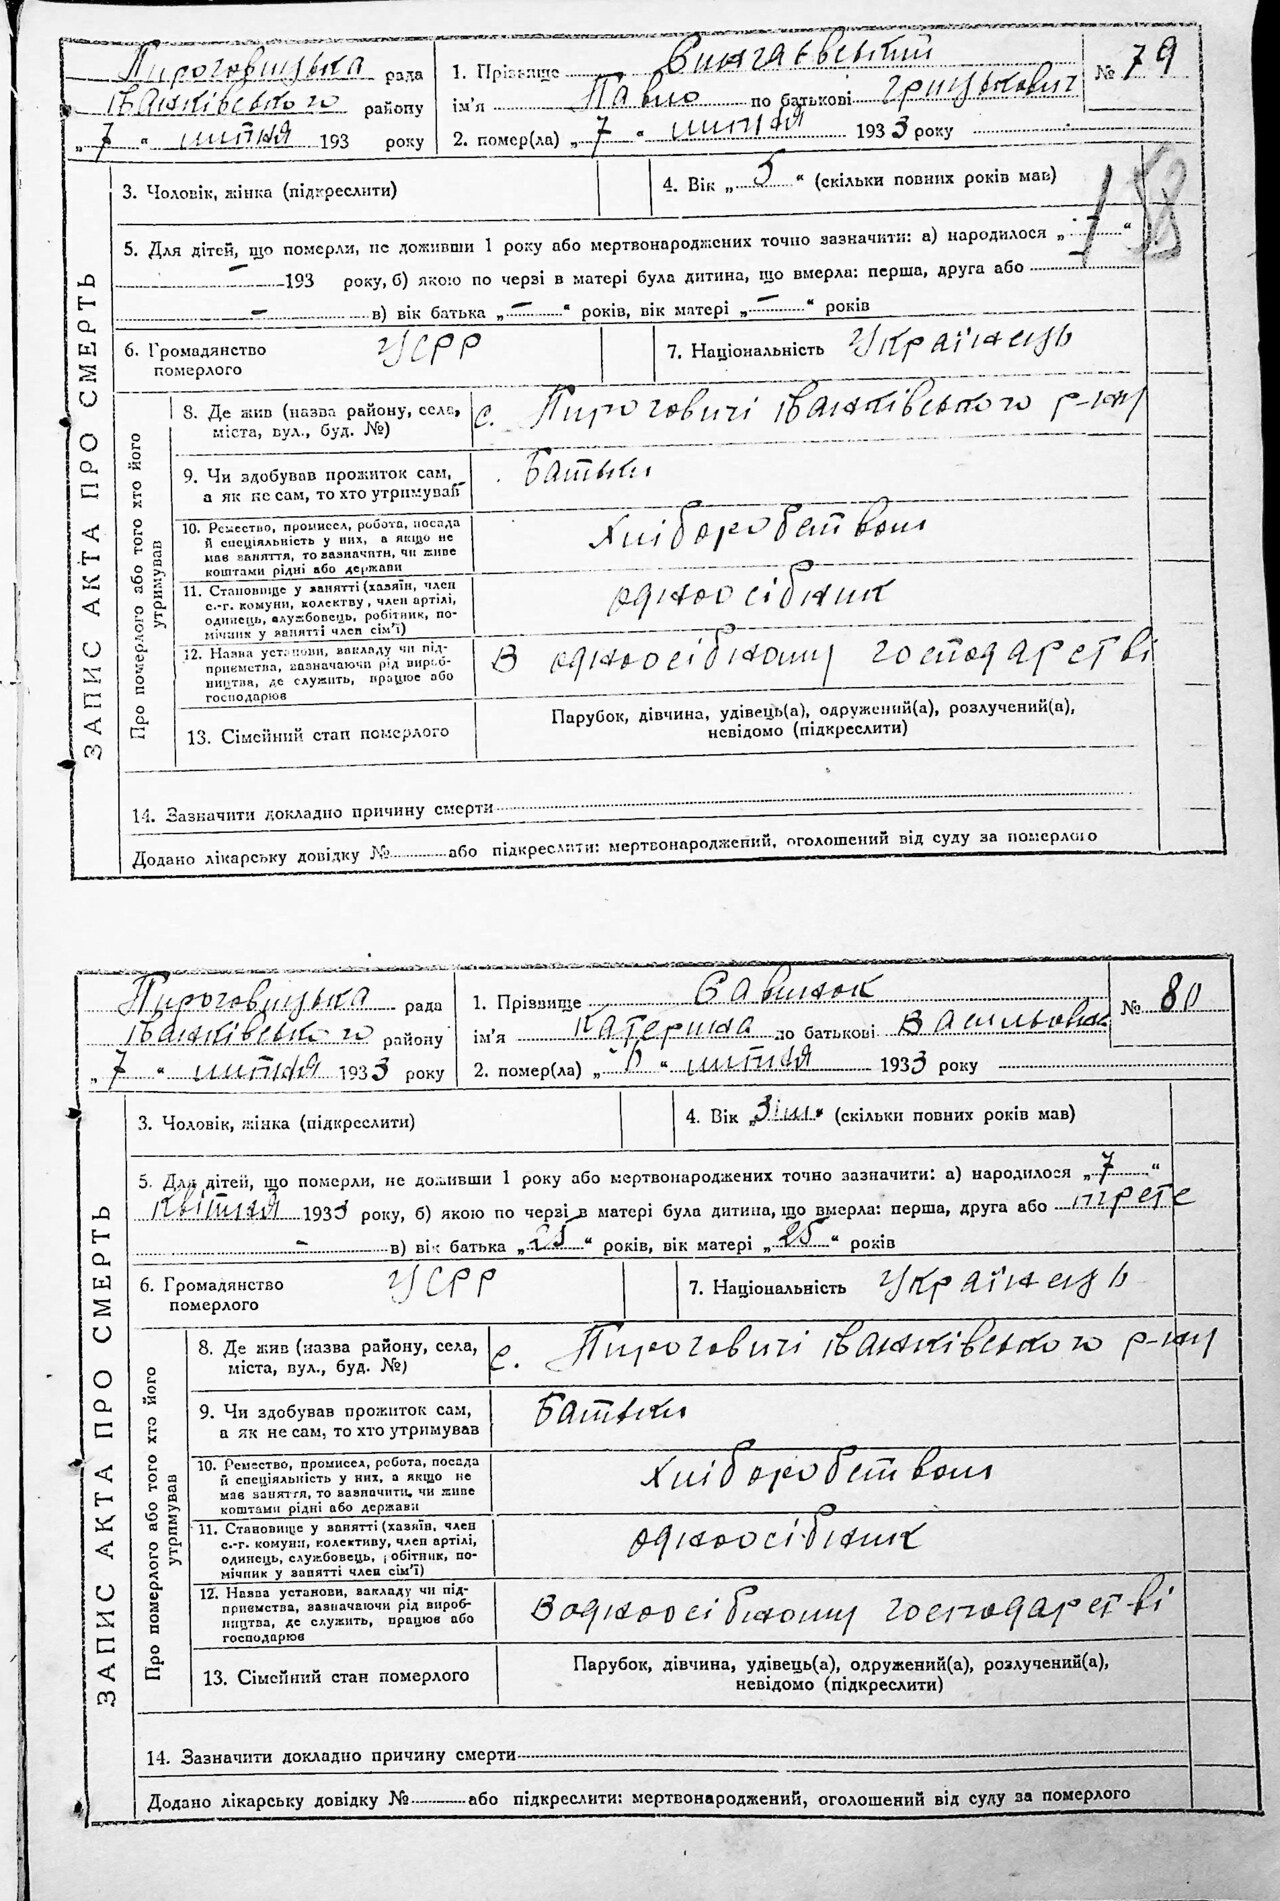 Пироговицька рада
Іванківського району
„ 7 “ липня 193 року
1. Прізвище Сингаєвський
ім'я Павло по батькові Грицькович
2. помер(ла) „ 7 “ липня 1933 року
№ 79
158
ЗАПИС АКТА ПРО СМЕРТЬ
3. Чоловік, жінка (підкреслити)
4. Вік „ 5 “ (скільки повних років мав)
5. Для дітей, що померли, не доживши 1 року або мертвонароджених точно зазначити: а) народилося „ – “
– 193 року, б) якою по черзі в матері була дитина, що вмерла: перша, друга або
– в) вік батька „ – “ років, вік матері „ – “ років
6. Громадянство померлого УСРР
7. Національність Українець
Про померлого або того хто його утримував
8. Де жив (назва району, села, міста, вул., буд. №)
с. Пироговичі Іванківського р-ну
9. Чи здобував прожиток сам, а як не сам, то хто утримував
Батьки
10. Ремество, промисел, робота, посада й спеціяльність у них, а якщо не має заняття, то зазначити, чи живе коштами рідні або держави
Хліборобством
11. Становище у занятті (хазяїн, член с.-г. комуни, колективу, член артілі, одинець, службовець, робітник, помічник у занятті член сім'ї)
одноосібник
12. Назва установи, закладу чи підприємства, зазначаючи рід виробництва, де служить, працює або господарює
В одноосібному господарстві
13. Сімейний стан померлого
Парубок, дівчина, удівець(а), одружений(а), розлучений(а), невідомо (підкреслити)
14. Зазначити докладно причину смерти
Додано лікарську довідку № або підкреслити: мертвонароджений, оголошений від суду за померлого
Пироговицька рада
Іванківського району
„ 7 “ липня 1933 року
1. Прізвище Савинок
ім'я Катерина по батькові Васильовна
2. помер(ла) „ 6 “ липня 1933 року
№ 80
ЗАПИС АКТА ПРО СМЕРТЬ
3. Чоловік, жінка (підкреслити)
4. Вік „ 3 м “ (скільки повних років мав)
5. Для дітей, що померли, не доживши 1 року або мертвонароджених точно зазначити: а) народилося „ 7 “
квітня 1933 року, б) якою по черзі в матері була дитина, що вмерла: перша, друга або трете
– в) вік батька „ 25 “ років, вік матері „ 25 “ років
6. Громадянство померлого УСРР
7. Національність Українець
Про померлого або того хто його утримував
8. Де жив (назва району, села, міста, вул., буд. №)
с. Пироговичі Іванківського р-ну
9. Чи здобував прожиток сам, а як не сам, то хто утримував
Батьки
10. Ремество, промисел, робота, посада й спеціяльність у них, а якщо не має заняття, то зазначити, чи живе коштами рідні або держави
Хліборобством
11. Становище у занятті (хазяїн, член с.-г. комуни, колективу, член артілі, одинець, службовець, робітник, помічник у занятті член сім'ї)
одноосібник
12. Назва установи, закладу чи підприємства, зазначаючи рід виробництва, де служить, працює або господарює
В одноосібному господарстві
13. Сімейний стан померлого
Парубок, дівчина, удівець(а), одружений(а), розлучений(а), невідомо (підкреслити)
14. Зазначити докладно причину смерти
Додано лікарську довідку № або підкреслити: мертвонароджений, оголошений від суду за померлого